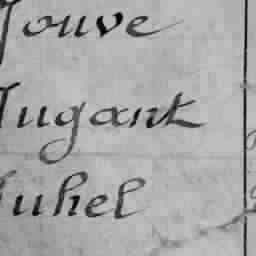 Jouve
Jugant
Juhel